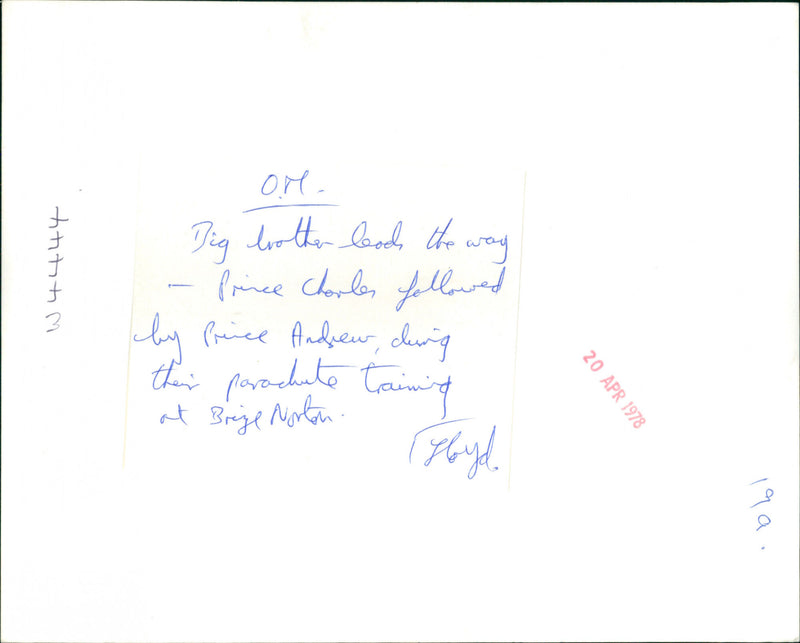 O.M.
Big brother leads the way
- Prince Charles followed
by Prince Andrew, during
their parachute training
at Brize Norton.
Lloyd.
34444
20 APR 1978
19a.